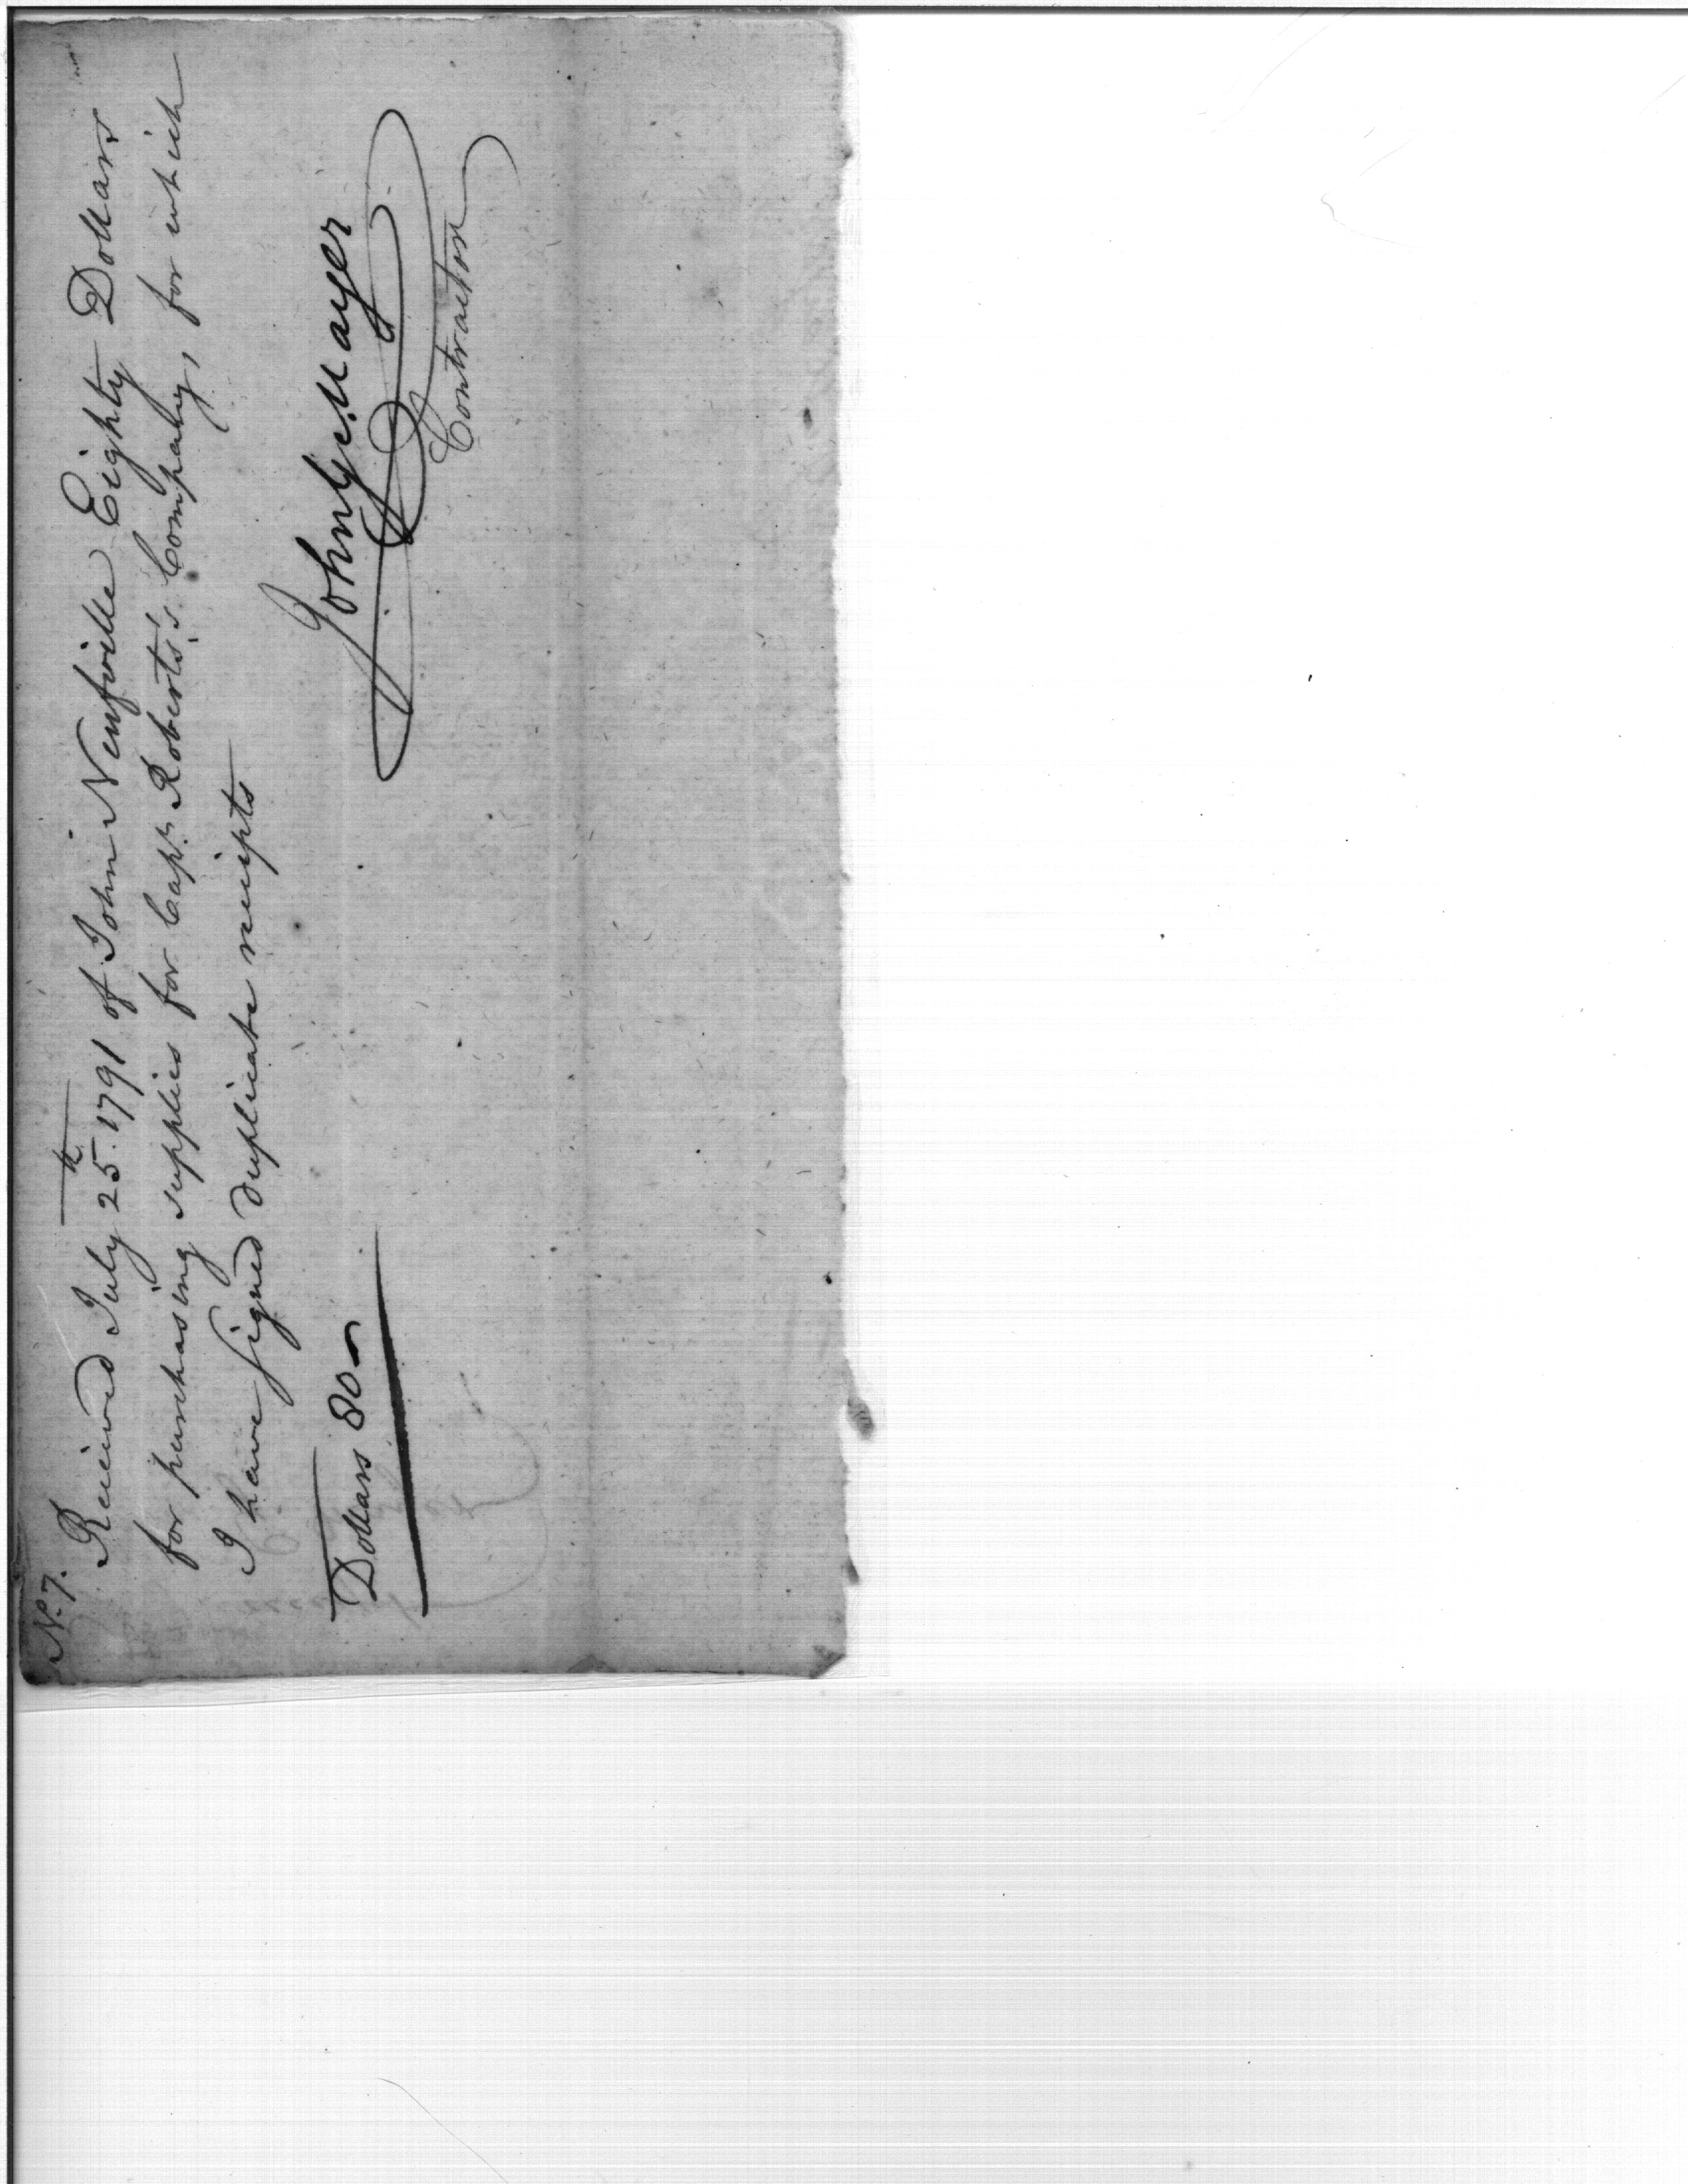 No. 7.
Received July 25th 1791 of John Neufville Eighty Dollars
for purchasing supplies for Capt. Roberts's Company, for which
I have signed duplicate receipts
John G. Mayer
Contractor
Dollars 80